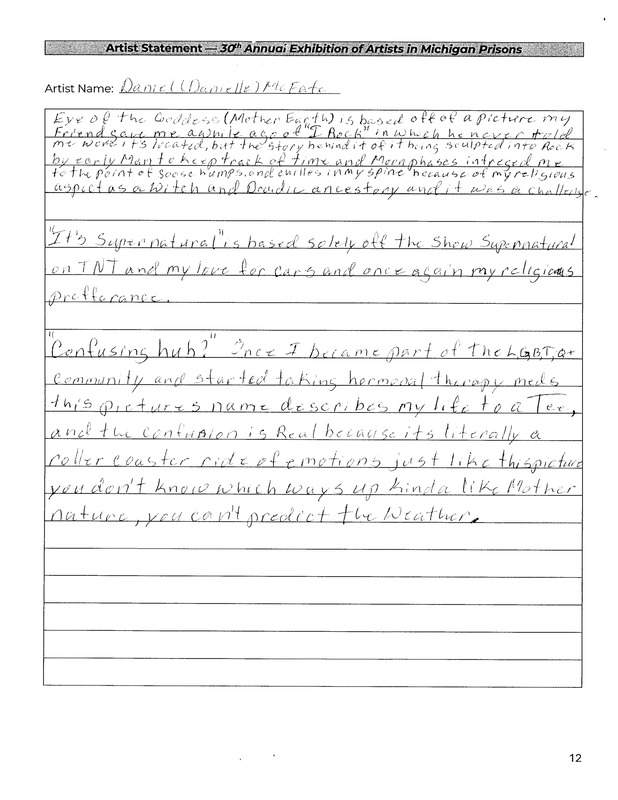 Artist Statement — 30th Annual Exhibition of Artists in Michigan Prisons
Artist Name: Daniel (Danielle) McFate
Eye of the Goddess (Mother Earth) is based off of a picture my
Friend gave me awhile ago of "I Rock" in which he never told
me were it's located, but the story behind it of it being sculpted into Rock
by early Man to keep track of time and Moonphases intreged me
to the point of goose bumps, and chilles in my spine because of my religious
aspect as a Witch and Druidic ancestory and it was a challenge.
"It's Supernatural" is based solely off the Show Supernatural
on TNT and my love for cars and once again my religious
prefferance.
"Confusing huh?" Once I became part of the L,G,B,T,Q+
community and started taking hormonal therapy meds
this pictures name describes my life to a Tee,
and the confusion is Real because its literally a
roller coaster ride of emotions just like this picture
you don't know which ways up kinda like Mother
nature, you can't predict the Weather.
12